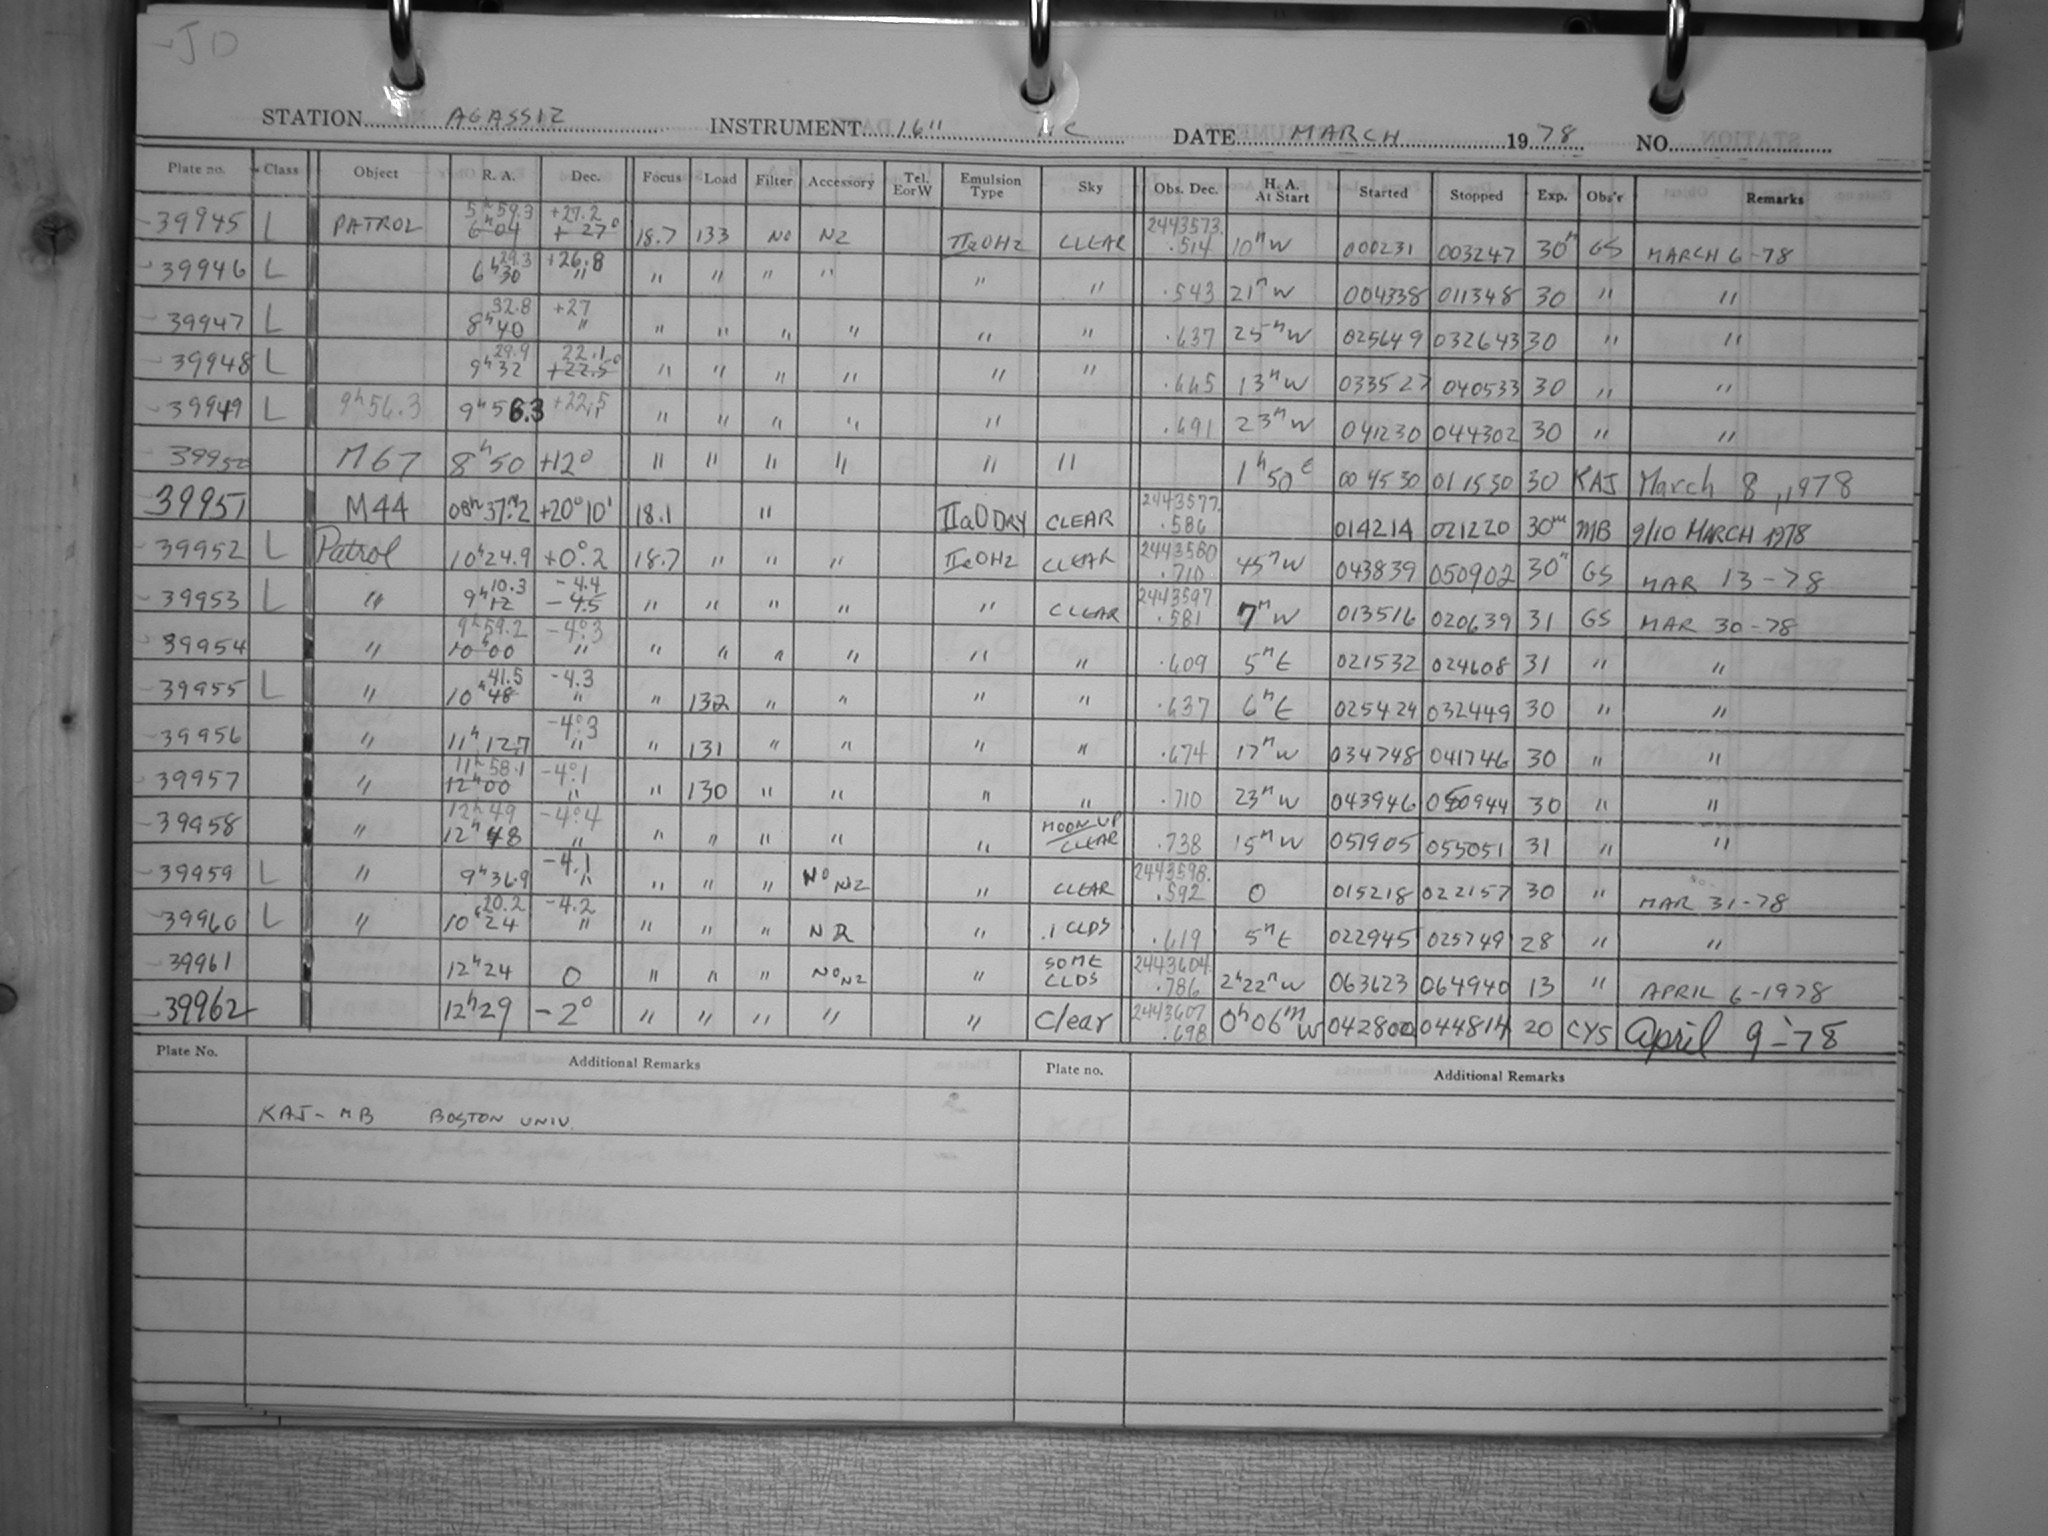 JD
STATION AGASSIZ INSTRUMENT 16" MC DATE MARCH 1978 NO.
Plate no. Class Object R. A. Dec. Focus Load Filter Accessory Tel. E or W Emulsion Type Sky Obs. Dec. H. A. At Start Started Stopped Exp. Obs'r Remarks
39945 L PATROL 5h59.3 6h04 +27.2 +27° 18.7 133 NO N2 IIaOH2 CLEAR 2443573. .514 10m W 000231 003247 30m GS MARCH 6-78
39946 L 6h30 29.3 +26.8 " " " " " " " .543 21m W 004338 011348 30 " "
39947 L 8h40 32.8 +27 " " " " " " " .637 25m W 025649 032643 30 " "
39948 L 9h32 29.9 22.1 +22.5° " " " " " " .665 13m W 033527 040533 30 " "
39949 L 9h56.3 9h56.3 +22.5 " " " " " " .691 23m W 041230 044302 30 " "
39950 M67 8h50 +12° " " " " " " 1h50 E 004530 011530 30 KAJ March 8, 1978
39951 M44 08h37m.2 +20°10' 18.1 " IIaO DRY CLEAR 2443577. .586 014214 021220 30m MB 9/10 MARCH 1978
39952 L Patrol 10h24.9 +0°.2 18.7 " " " IIaOH2 CLEAR 2443580 .710 45m W 043839 050902 30m GS MAR 13-78
39953 L " 9h12 10.3 -4.4 -4.5 " " " " " CLEAR 2443597 .581 7m W 013516 020639 31 GS MAR 30-78
39954 " 9h59.2 10h00 -4°.3 " " " " " " " .609 5m E 021532 024608 31 " "
39955 L " 10h48 41.5 -4.3 " " 132 " " " " .637 6m E 025424 032449 30 " "
39956 " 11h12.7 -4°.3 " " 131 " " " " .674 17m W 034748 041746 30 " "
39957 " 11h58.1 12h00 -4°.1 " " 130 " " " " .710 23m W 043946 050944 30 " "
39958 " 12h49 12h48 -4°.4 " " " " " " MOON UP CLEAR .738 15m W 051905 055051 31 " "
39959 L " 9h36.9 -4.1 " " " " NO N2 " CLEAR 2443598. .592 0 015218 022157 30 " MAR 31-78
39960 L " 10h24 20.2 -4.2 " " " " N2 " .1 CLDS .619 5m E 022945 025749 28 " "
39961 12h24 0 " " " NO N2 " SOME CLDS 2443604. .786 2h22m W 063623 064940 13 " APRIL 6-1978
39962 12h29 -2° " " " " " Clear 2443607 .698 0h06m W 042800 044814 20 CYS April 9-'78
Plate No. Additional Remarks Plate no. Additional Remarks
KAJ - MB BOSTON UNIV.